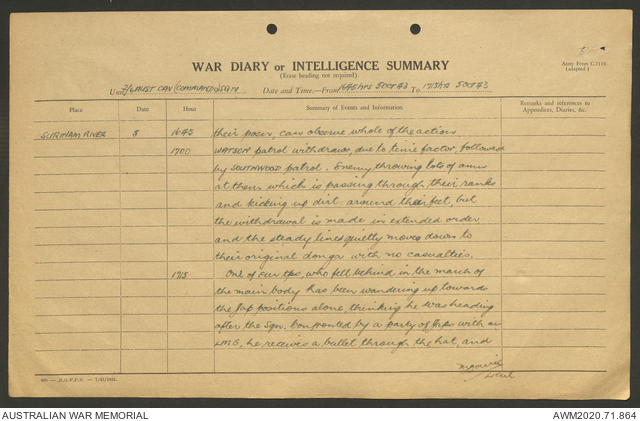 Army Form C.2118
(adapted.)
WAR DIARY or INTELLIGENCE SUMMARY
(Erase heading not required).
Unit 2/6 AUST CAV (COMMANDO) SQN Date and Time.—From 1645 hrs 5 OCT 43 To 1715 hr 5 OCT 43
Place Date Hour Summary of Events and Information Remarks and references to
Appendices, Diaries, &c.
SURINAM RIVER 5 1645 their posn, can observe whole of the action
1700 WATSON patrol withdraws due to time factor, followed
by SOUTHWOOD patrol. Enemy throwing lots of amn
at them which is passing through their ranks
and kicking up dirt around their feet, but
the withdrawal is made in extended order
and the steady lines quietly moves down to
their original donga with no casualties.
1715 One of our tps, who fell behind in the march of
the main body has been wandering up toward
the Jap positions alone, thinking he was heading
after the Sqn. Confronted by a party of Japs with an
LMG, he receives a bullet through the hat, and
AUSTRALIAN WAR MEMORIAL AWM2020.71.864